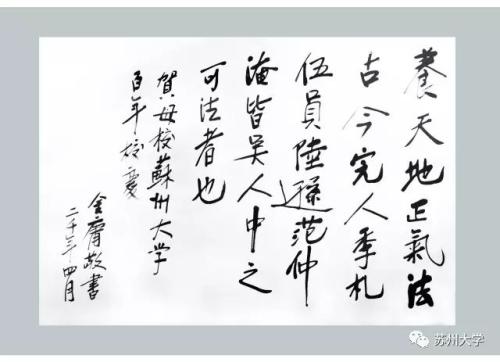 養天地正氣法
古今完人季札
伍員陸遜范仲
淹皆吳人中之
可法者也
賀母校蘇州大学
百年校慶
金庸敬書
二千年四月
苏州大学